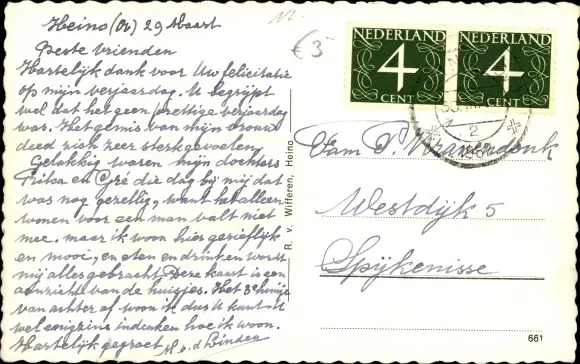 Heino (Ov) 29 Maart
Beste vrienden
Hartelijk dank voor Uw felicitatie
op mijn verjaardag. U begrijpt
wel dat het geen prettige verjaardag
was. Het gemis van mijn vrouw
deed zich zeer sterk gevoelen.
Gelukkig waren mijn dochters
en Gré die dag bij mij dat
was nog gezellig, want het alleen
wonen voor een man valt niet
mee, maar ik woon hier gerieflijk
en mooi, en eten en drinken wordt
mij alles gebracht. Deze kaart is een
aanzicht van de huisjes. Het 3e huisje
van achter af woon ik dus U kunt U
wel enigzins indenken hoe ik woon.
Hartelijk gegroet v. d. Linden
€ 3
NEDERLAND
4
CENT
NEDERLAND
4
CENT
2
R. v. Wifferen, Heino
Fam P.
Westdijk 5
Spijkenisse
661